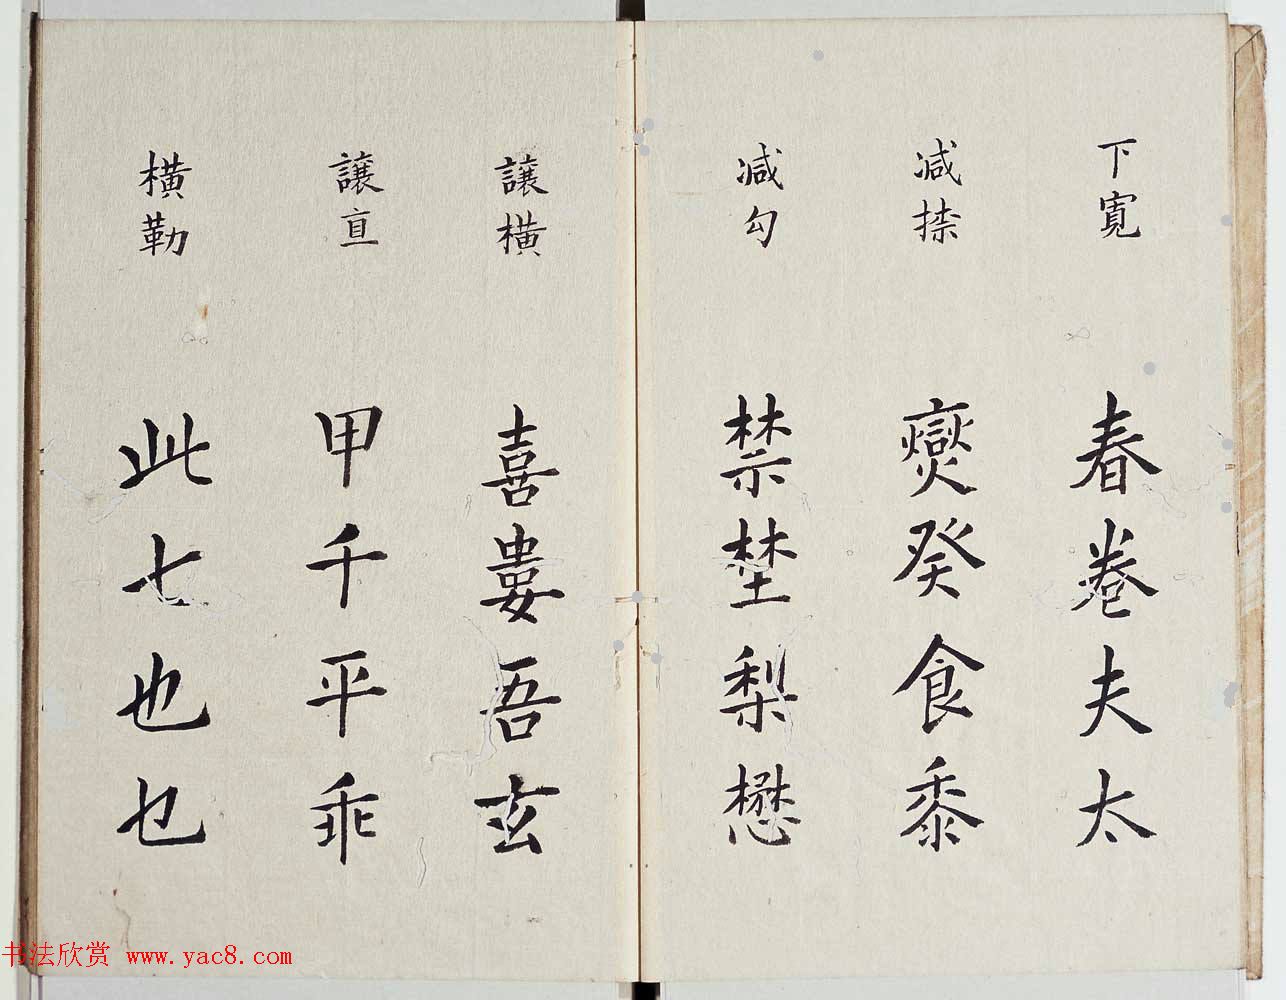 下寬
春卷夫太
減捺
燮癸食黍
減勾
禁埜梨懋
讓橫
喜婁吾玄
讓直
甲千平乖
橫勒
此七也乜
书法欣赏 www.yac8.com